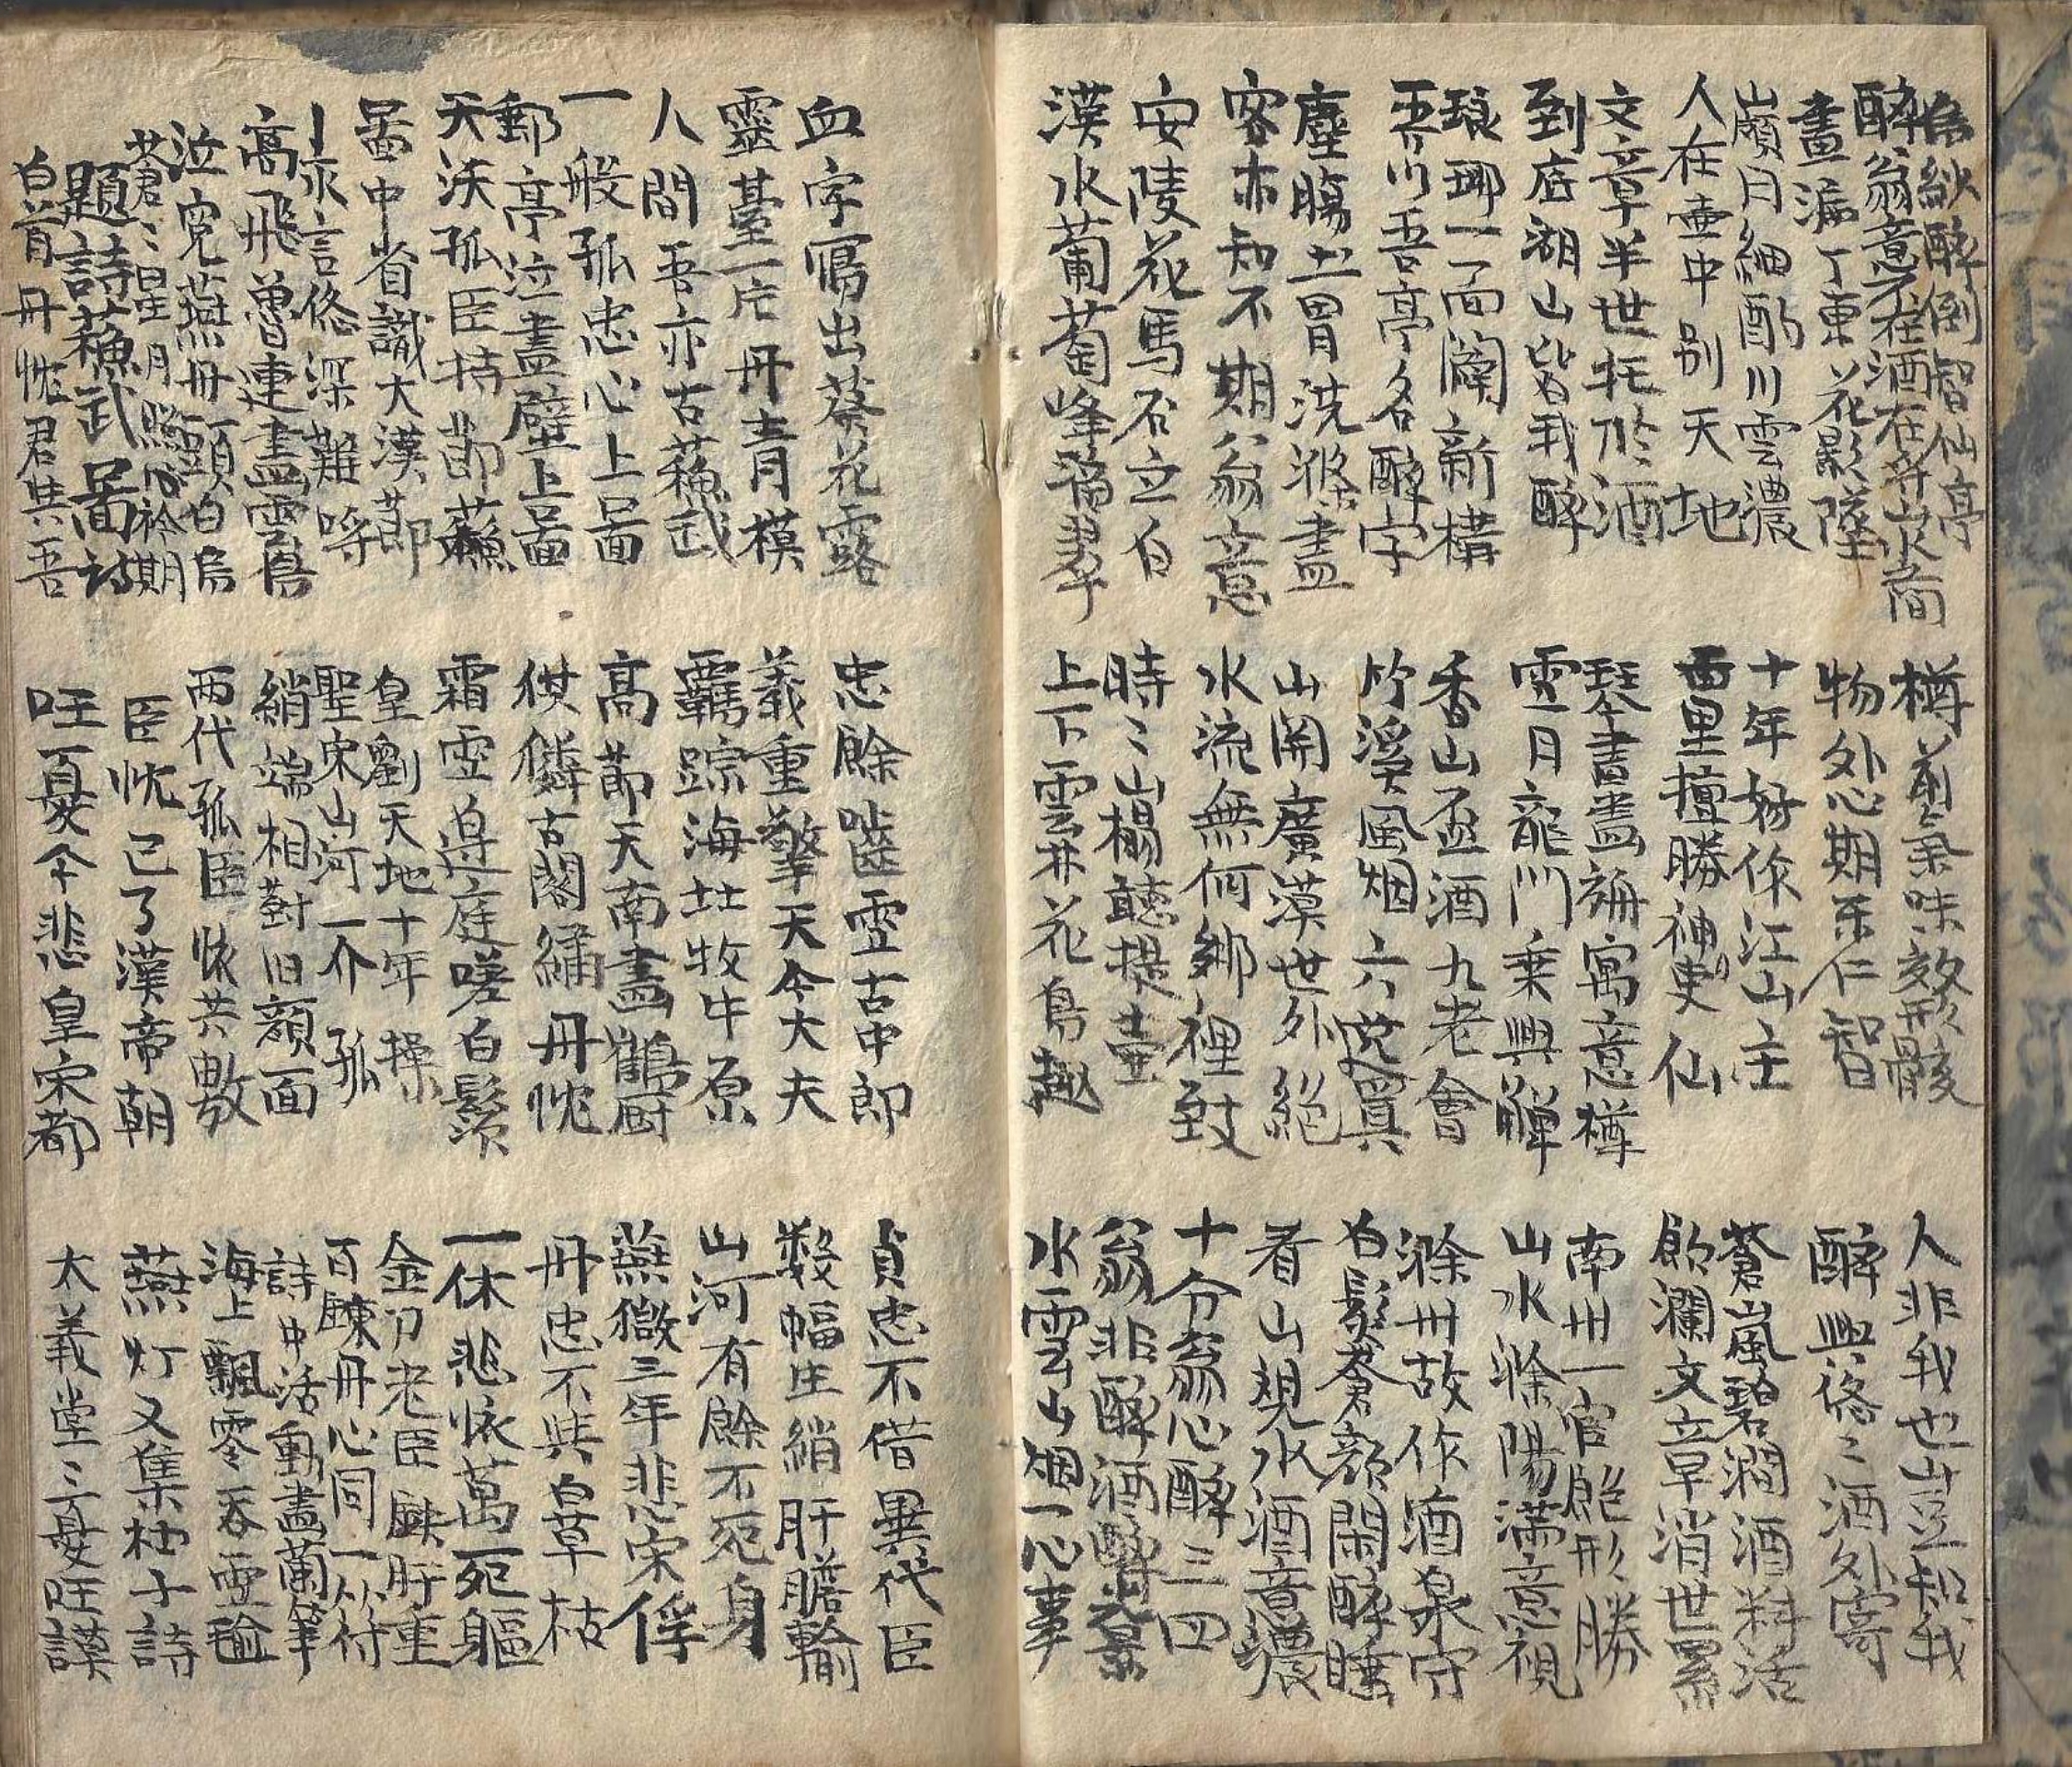 為紋醉倒智仙亭
醉翁意不在酒在乎山水間
畫漏丁東花影墜
日細酌川雲濃
人在壷中別天地
文章半世托於酒
到底湖山皆我醉
琅琊一面闢新構
吾以吾亭名醉字
塵膓土胃洗滌盡
客亦知不期翁意
安陵花馬石立白
漢水葡萄峰
樽前氣味效形骸
物外心期乐仁智
十年好作江山主
西里擅勝神叟仙
琴書盡寓意樽
雪月龍門乗興
香山盃酒九老會
竹溪風烟六逸
山開廣漠世外絕
水流無何鄉裡致
時ゝ山榻聽提壷
上下雲井花鳥趣
人非我也山豈知我
醉興洛ゝ酒外寄
蒼嵐碧澗酒料活
餘瀾文章消世累
南州一官飽形勝
山水滁陽滿意視
滁州故作酒泉守
白鬂蒼顔閑醉睡
看山覌水酒意濃
十分翁心醉三四
翁非醉酒醉景
水雲山烟一心事
血字寫出蔡花露
靈臺一片丹青模
人間吾亦古蘓武
一般孤忠心上畐
郵亭泣盡壁上畐
天沃孤臣持節蘓
畐中省識大漢節
永言悠深難
高飛魯連盡雲島
泣寃燕丹頭白烏
蒼ゝ星月照心衿期
題詩蘓武畐詩
白首丹忱君共吾
忠餘嚙雪古中郎
義重擎天今大夫
覊踪海北牧中原
高節天南畵鶴厨
供憐古閣繡丹忱
霜雪边庭嗟白鬚
皇劉天地十年操
聖宋山河一介孤
綃端相對旧顔面
两代孤臣懷共敷
臣忱已了漢帝朝
今悲皇宋都
貞忠不借異代臣
數幅生綃肝膽輸
山河有餘不死身
燕獄三年悲宋俘
丹忠不與白草枯
一休悲懷萬死軀
金刀老臣鉄肝重
百鍊丹心同一符
詩中活動畵蘭筆
海上飄零吞雪
燕灯又集杜子詩
大義堂ゝ